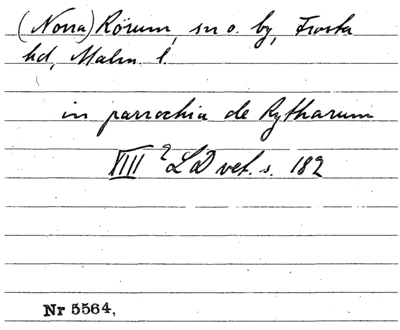 (Norra) Rörum, sn o. by, Frosta
hd, Malm. l.
in parrochia de Rytharum
XIII 2 LD vet. s. 182
Nr 5564,